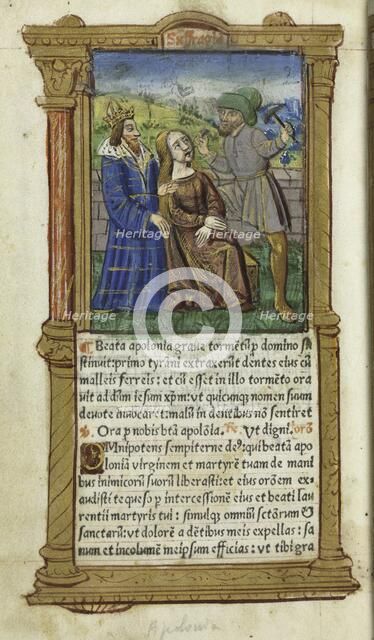 Suffragia
Beata apolonia graue tormētū p domino su
stinuit: primo tyrani extraxerūt dentes eius cū
malleis ferreis: et cū esset in illo tormēto ora
uit ad dūm iesum xp̄m: vt quicunqz nomen suum
deuote inuocaret: malū in dentibus nō sentiret
Ora p nobis bta apolōia. Vt digni. orō
OMnipotens sempiterne de⁹: qui beatā apo
loniā virginem et martyrē tuam de mani
bus inimicorū suorū liberasti: et eius orōem ex
audisti te queso p intercessionē eius et beati lau
rentii martyris tui: simulqz omniū sctōrum &
sanctarū: vt dolorē a dētibus meis expellas: sa
num et incolumē meipsum efficias: vt tibi gra
Apolonia
Heritage Heritage
Heritage Heritage